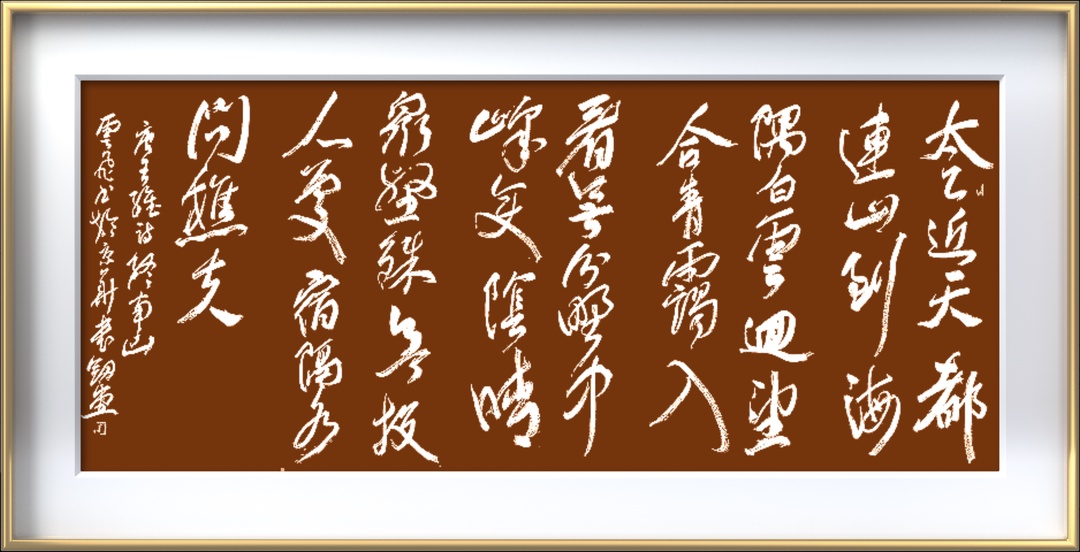 太乙近天都
連山到海
隅白雲迴望
合青靄入
看無分野中
峰變陰晴
衆壑殊欲投
人處宿隔水
問樵夫
唐王維詩終南山
雲飛書於京華書劍